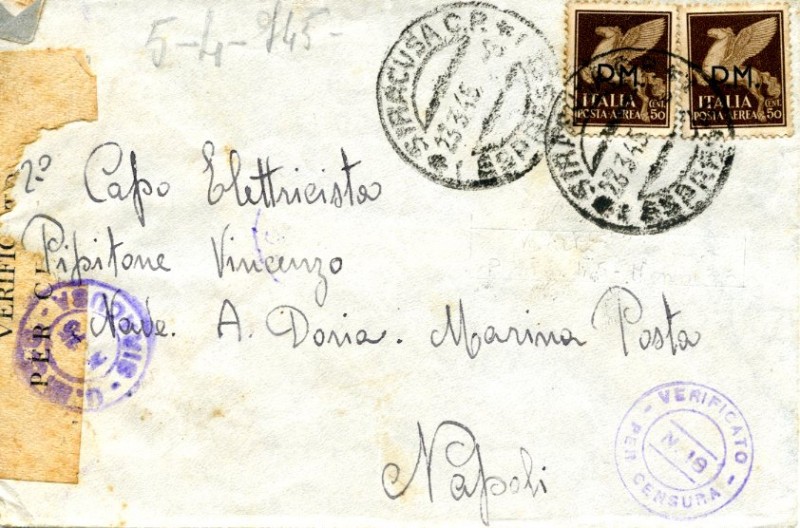 5-4-945-
SIRACUSA C.P.
28.3.45
ESPRESSI
D.M.
ITALIA
POSTA·AEREA
CENT. 50
D.M.
ITALIA
POSTA·AEREA
CENT. 50
28.3.45
ESPRESSI
2º Capo Elettricista
Pipitone Vincenzo
Nave. A. Doria. Marina Posta
Napoli
PER
VERIFICATO
PER CENSURA
N. 19